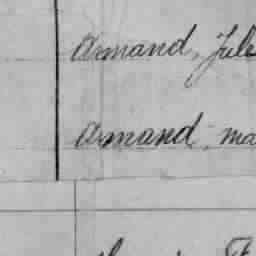 Armand, Jule
Armand, ma